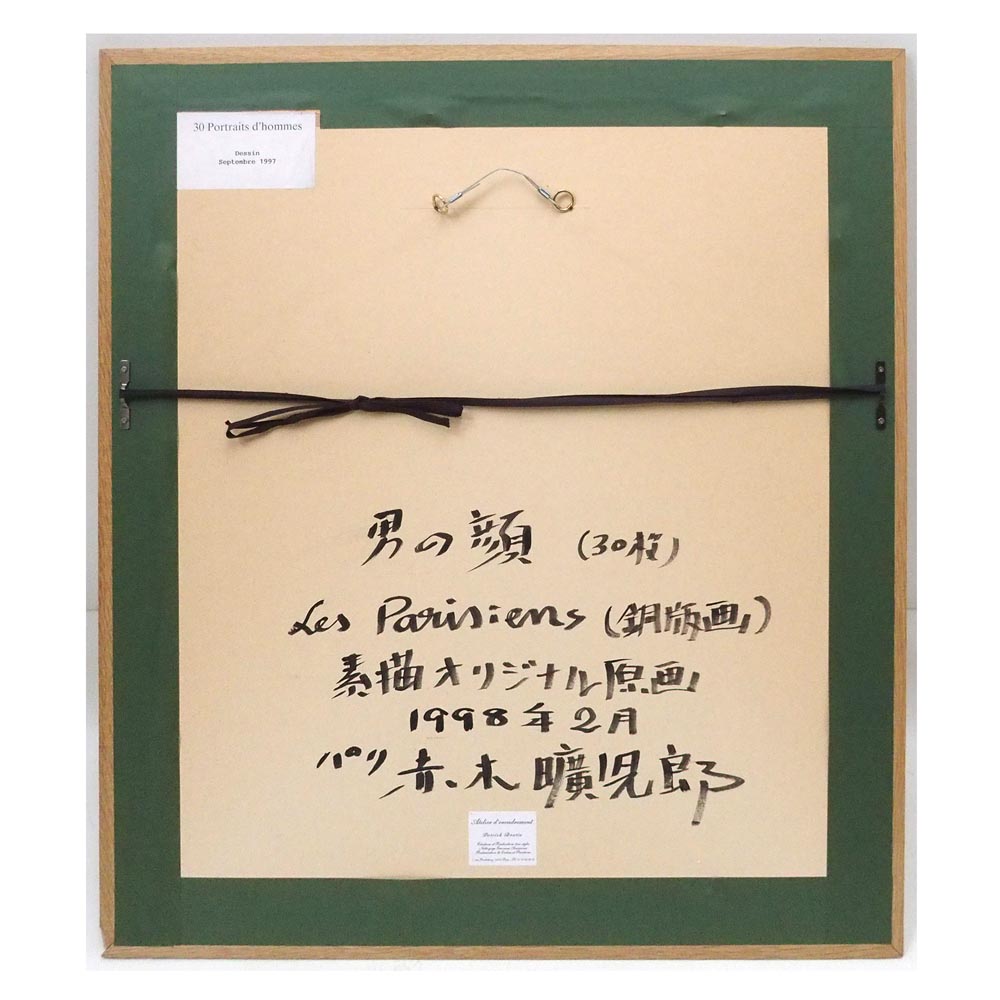 30 Portraits d'hommes
Dessin
Septembre 1997
男の顔 (30枚)
Les Parisiens (銅版画)
素描オリジナル原画
1998年2月
パリ 赤木曠児郎
Atelier d'encadrement